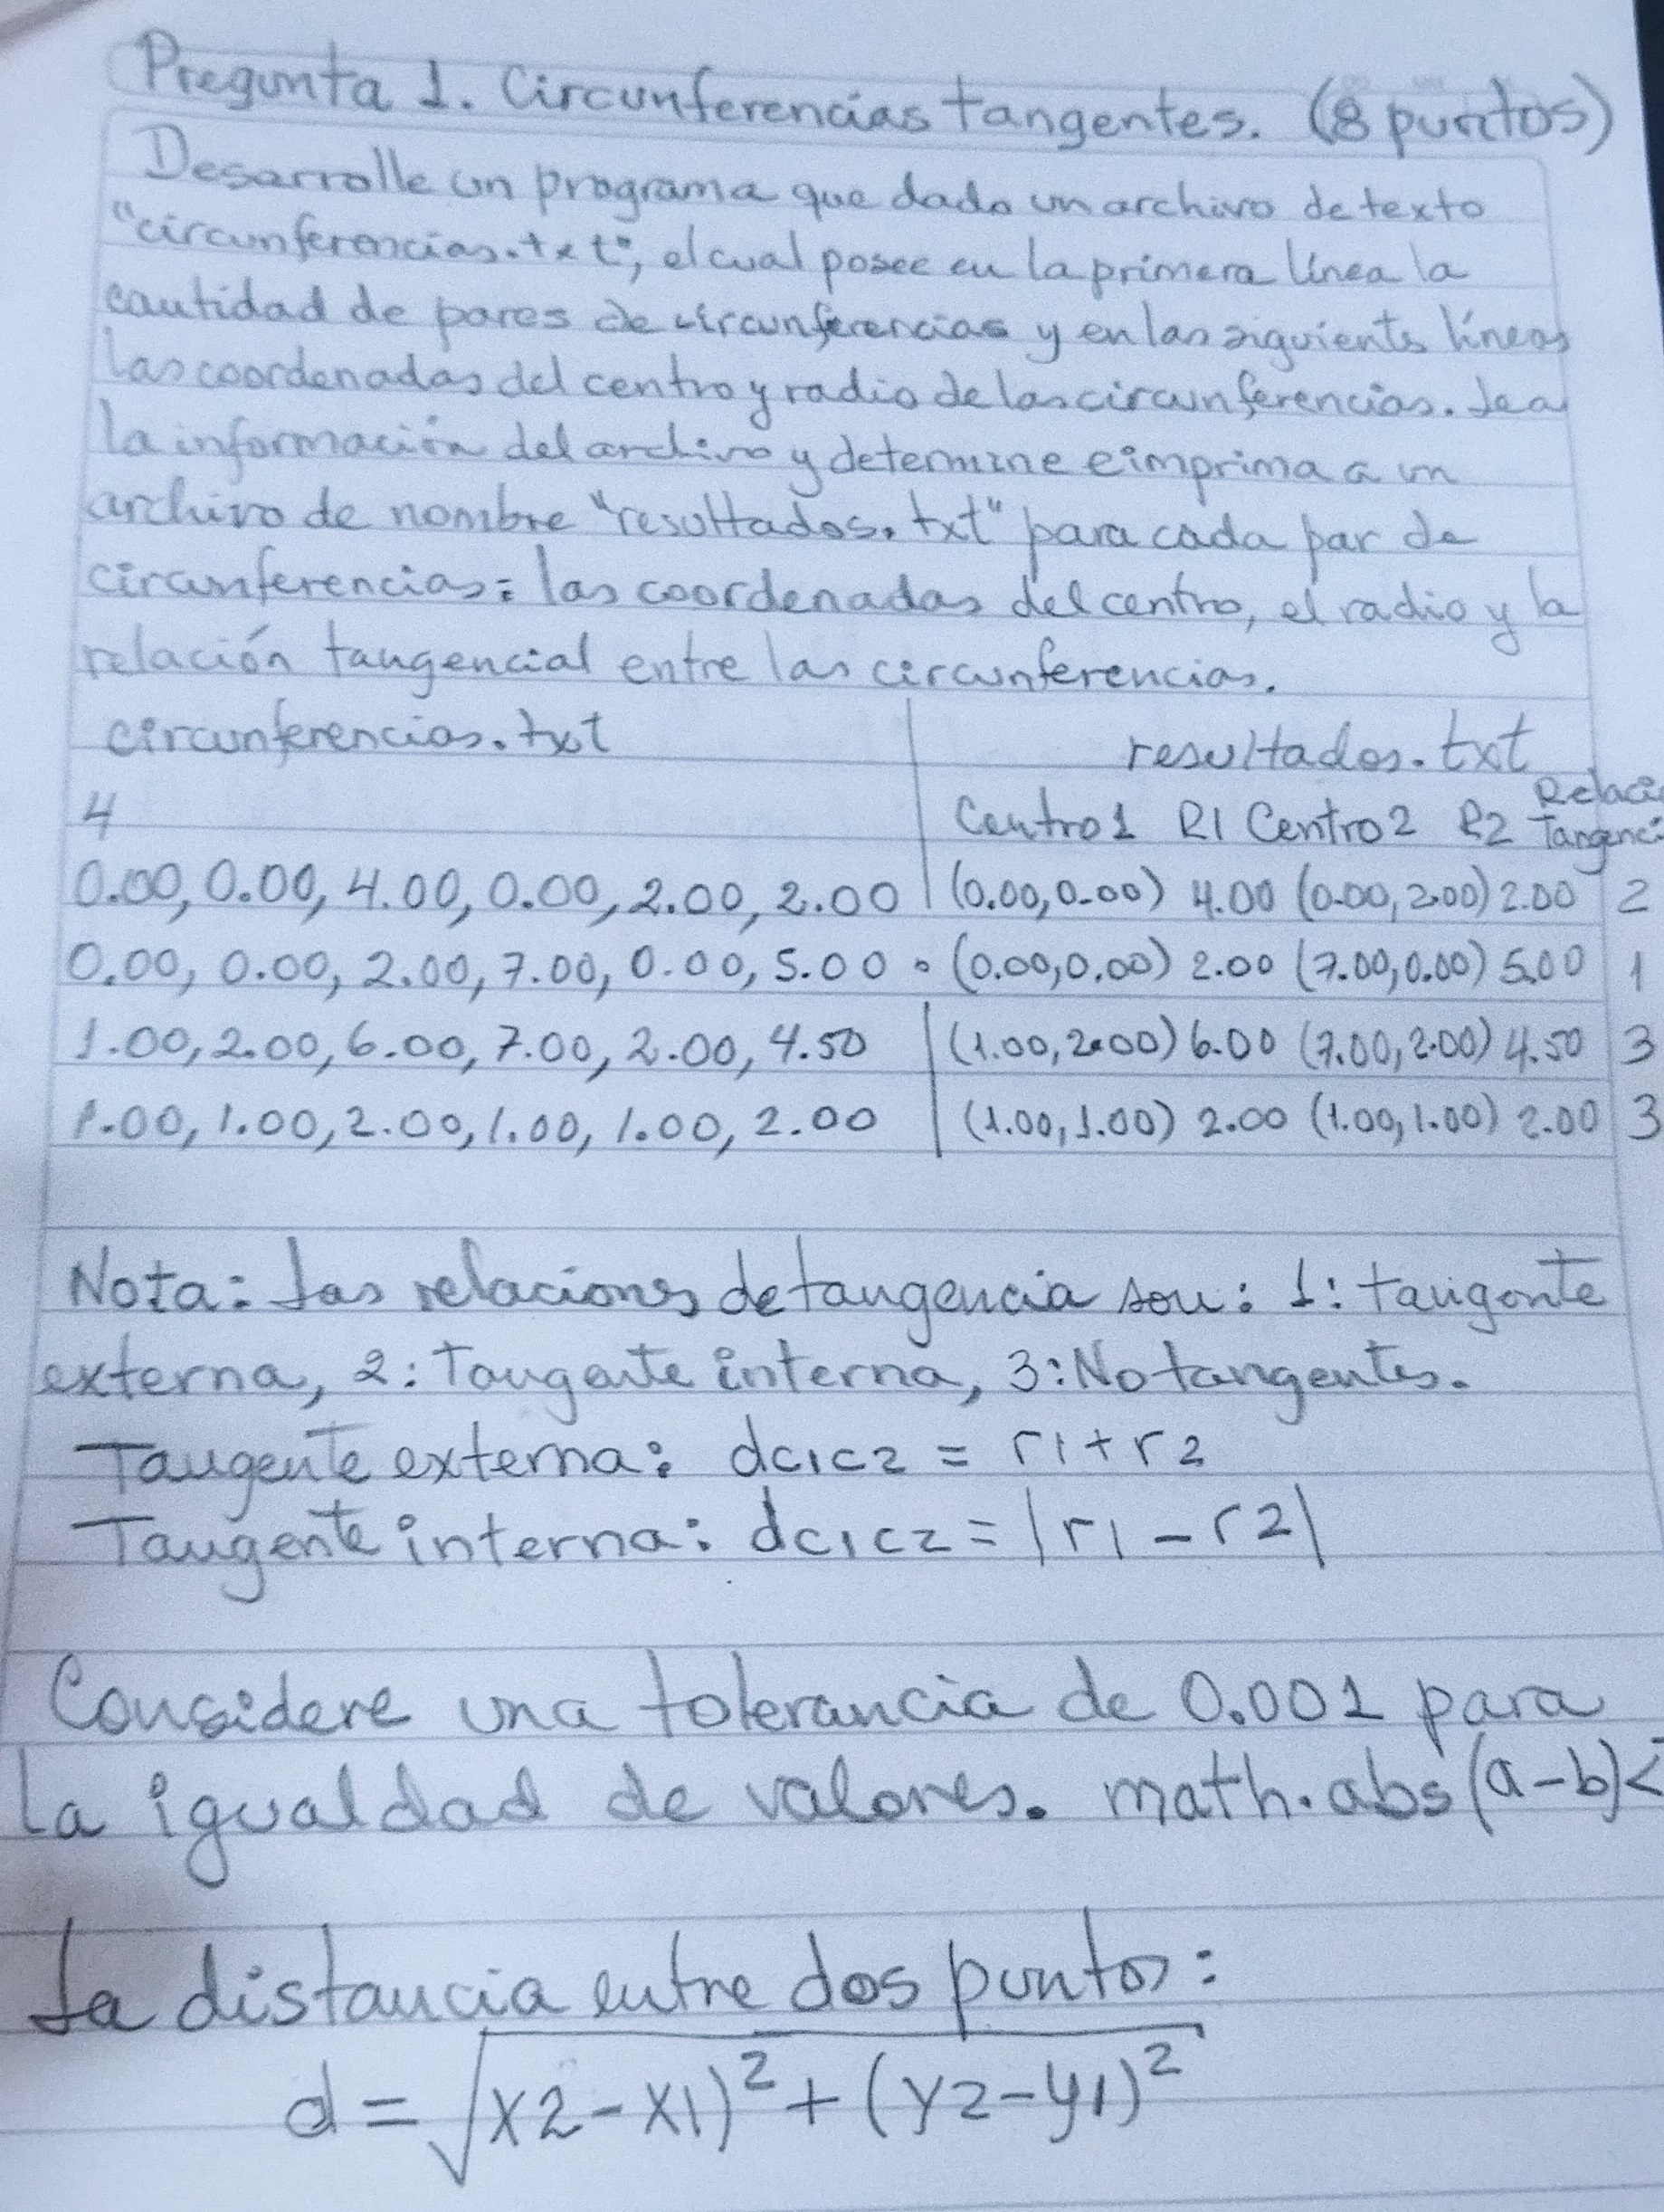 Pregunta 1. Circunferencias tangentes. (8 puntos)
Desarrolle un programa que dado un archivo de texto
"circunferencias.txt", el cual posee en la primera línea la
cantidad de pares de circunferencias y en las siguientes líneas
las coordenadas del centro y radio de las circunferencias. Lea
la información del archivo y determine e imprima a un
archivo de nombre "resultados.txt" para cada par de
circunferencias: las coordenadas del centro, el radio y la
relación tangencial entre las circunferencias.
circunferencias.txt resultados.txt
4 Centro1 R1 Centro2 R2 Relaci
Tangenci
0.00, 0.00, 4.00, 0.00, 2.00, 2.00 (0.00,0.00) 4.00 (0.00,2.00) 2.00 2
0.00, 0.00, 2.00, 7.00, 0.00, 5.00 (0.00,0.00) 2.00 (7.00,0.00) 5.00 1
1.00, 2.00, 6.00, 7.00, 2.00, 4.50 (1.00,2.00) 6.00 (7.00,2.00) 4.50 3
1.00, 1.00, 2.00, 1.00, 1.00, 2.00 (1.00,1.00) 2.00 (1.00,1.00) 2.00 3
Nota: Las relaciones de tangencia son: 1: tangente
externa, 2: Tangente interna, 3: No tangentes.
Tangente externa: dc1c2 = r1+r2
Tangente interna: dc1c2 = |r1-r2|
Considere una tolerancia de 0.001 para
la igualdad de valores. math.abs(a-b)<
La distancia entre dos puntos:
d = √x2-x1)²+(y2-y1)²